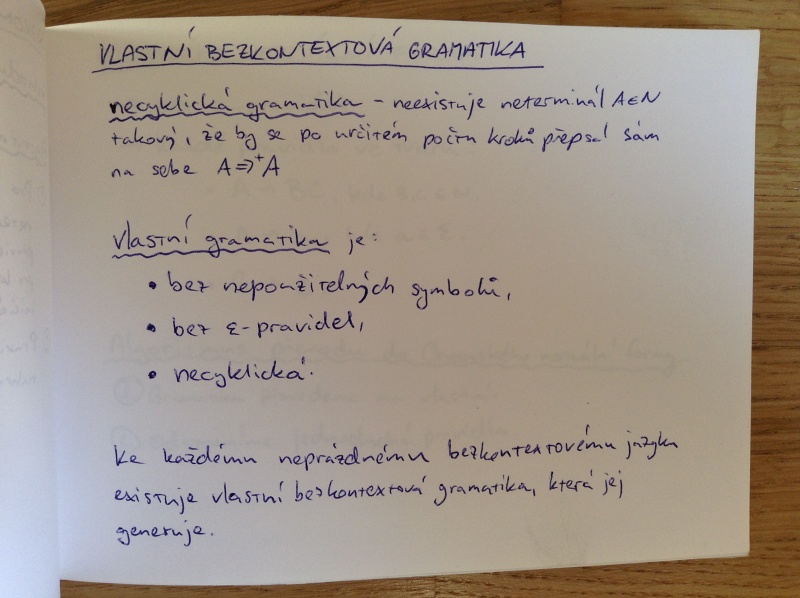 VLASTNÍ BEZKONTEXTOVÁ GRAMATIKA
necyklická gramatika – neexistuje neterminál A∈N
takový, že by se po určitém počtu kroků přepsal sám
na sebe A⇒⁺A
vlastní gramatika je:
• bez nepoužitelných symbolů,
• bez ε-pravidel,
• necyklická.
Ke každému neprázdnému bezkontextovému jazyku
existuje vlastní bezkontextová gramatika, která jej
generuje.